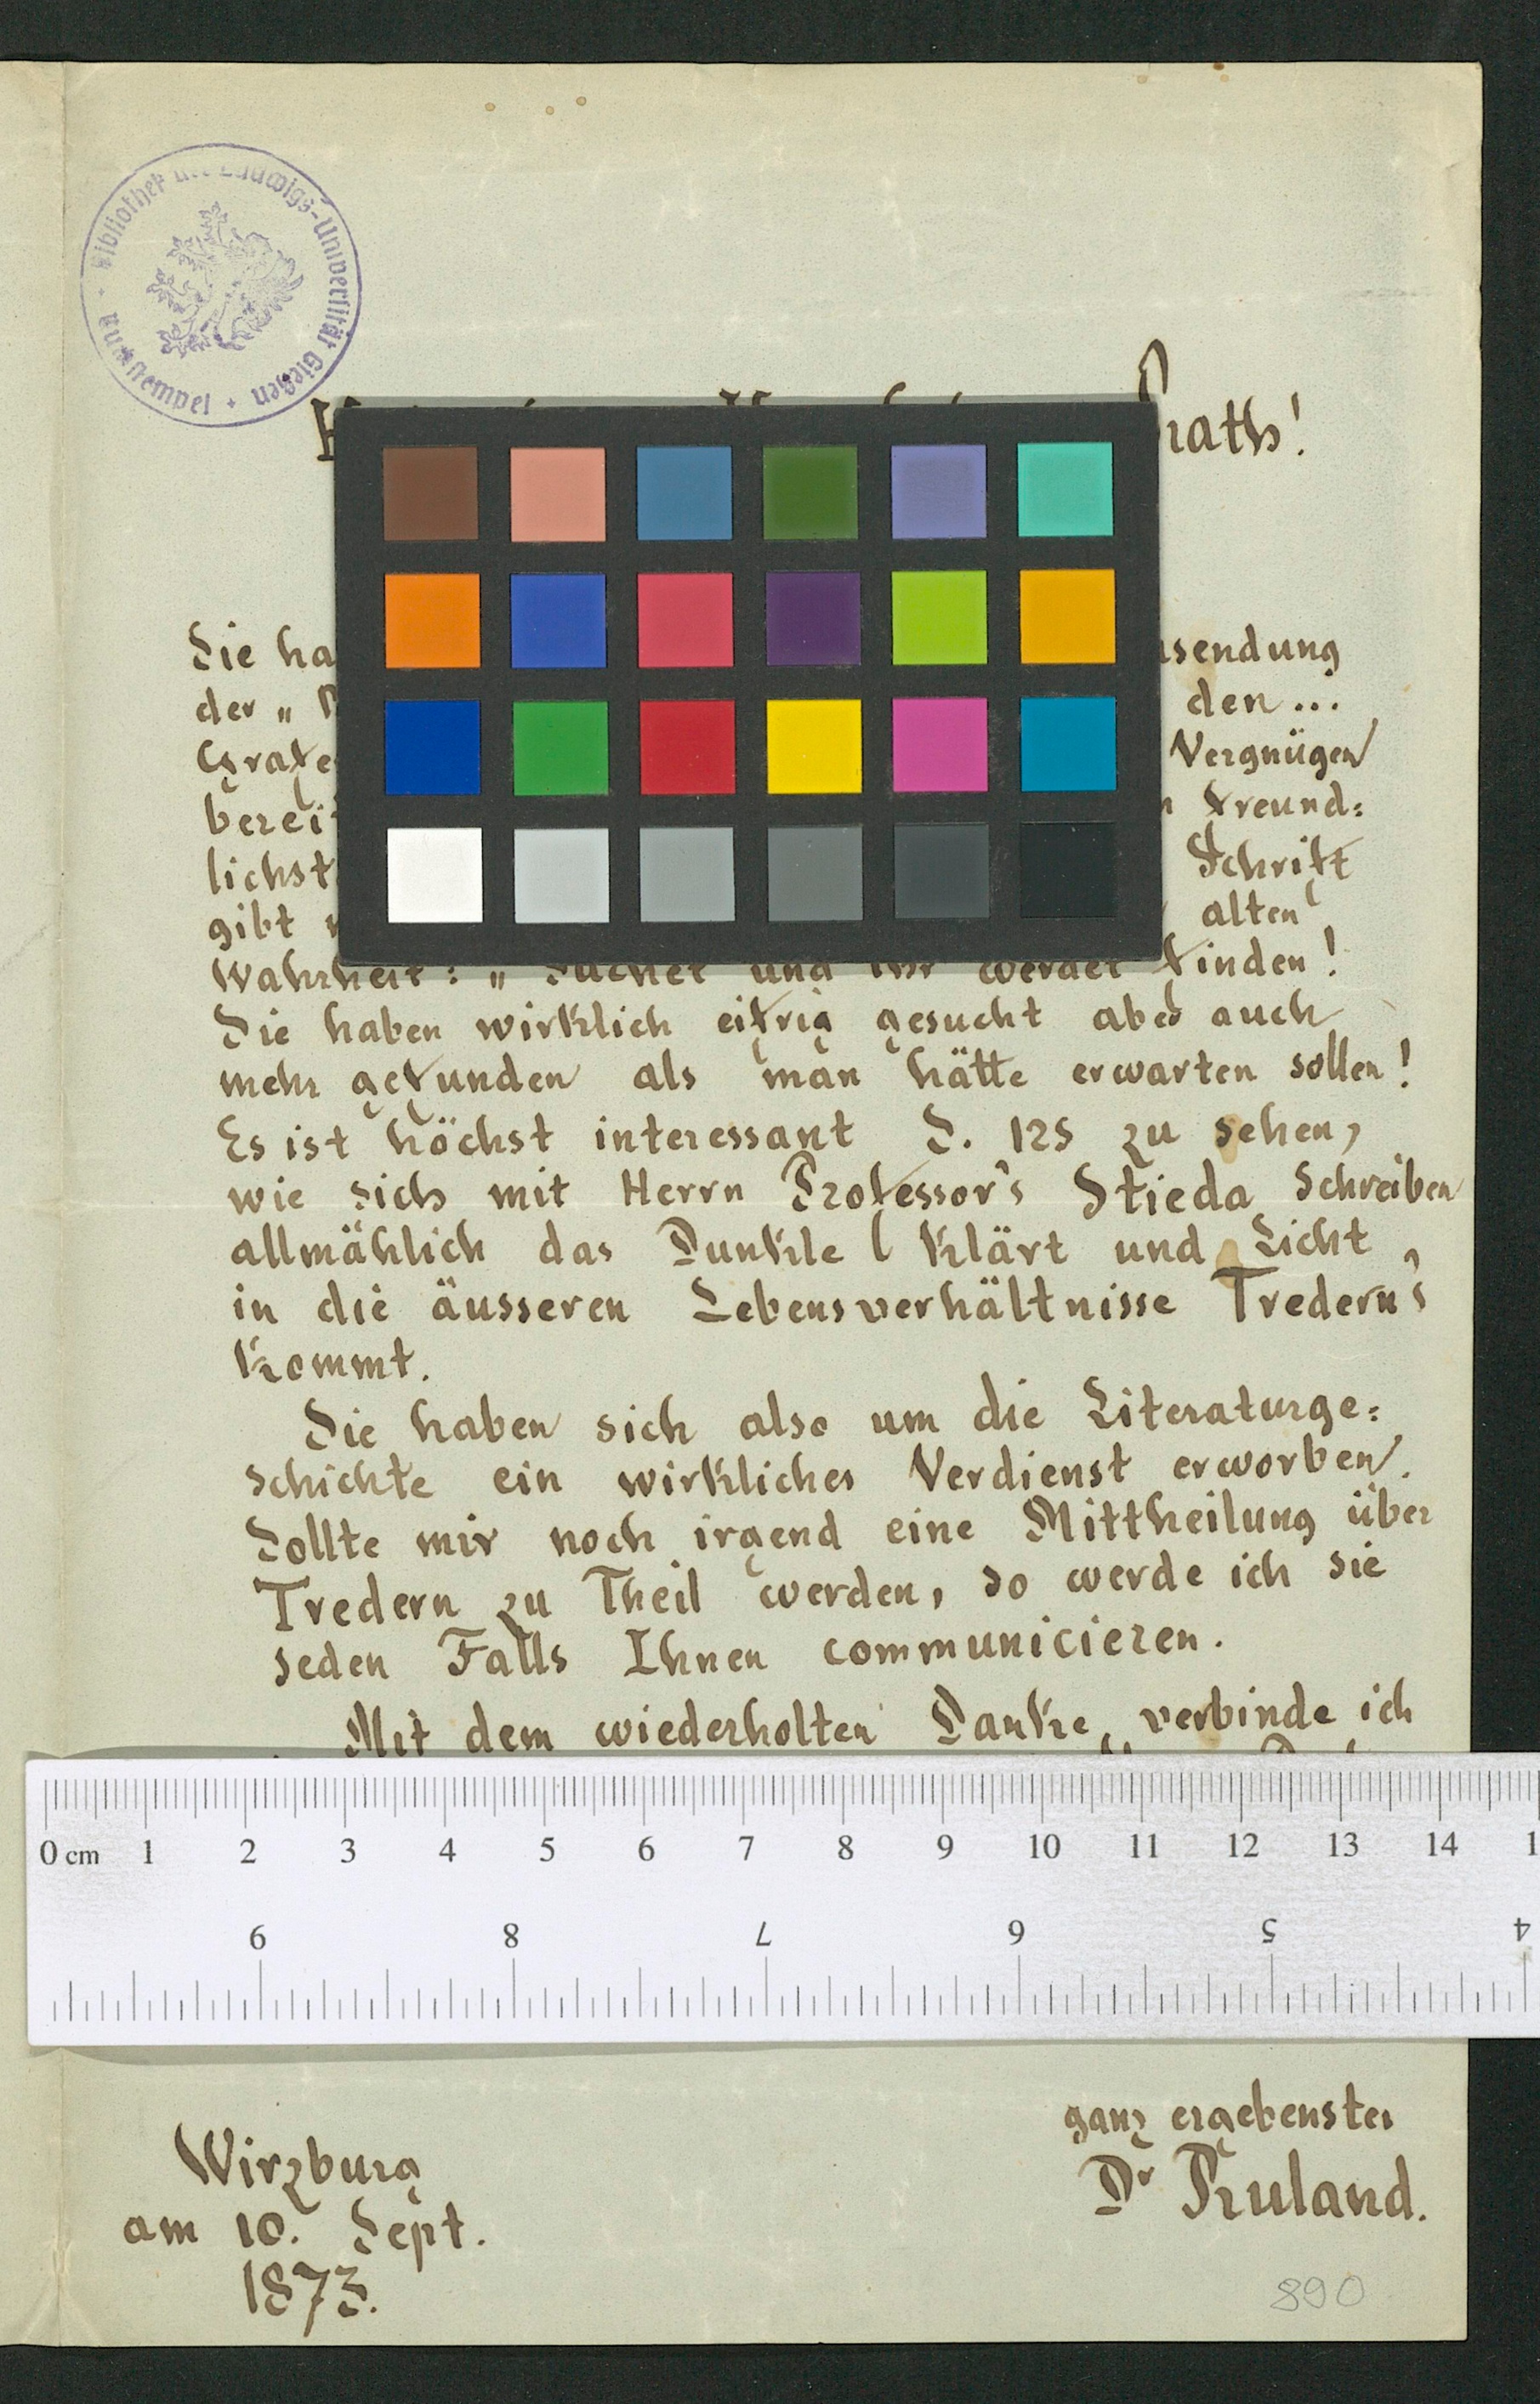 Bibliothek der Ludwigs-Universität Gießen
rath!
Sie ha
sendung
der „
den ...
Grafe
Vergnügen
berei
freund=
lichst
Schrift
gibt
alten
Wahrheit: „Suchet und Ihr werdet finden!
Sie haben wirklich eifrig gesucht aber auch
mehr gefunden als man hätte erwarten sollen!
Es ist höchst interessant S. 125 zu sehen,
wie sich mit Herrn Professor's Stieda Schreiben
allmählich das Dunkle klärt und Licht,
in die äusseren Lebensverhältnisse Tredern's
kommt.
Sie haben sich also um die Literaturge=
schichte ein wirkliches Verdienst erworben.
Sollte mir noch irgend eine Mittheilung über
Tredern zu Theil werden, so werde ich sie
jeden Falls Ihnen communicieren.
Mit dem wiederholten Danke verbinde ich
0 cm 1 2 3 4 5 6 7 8 9 10 11 12 13 14 1
9 8 7 6 5 4
ganz ergebenster
Dr Ruland.
Wirzburg
am 10. Sept.
1873.
890